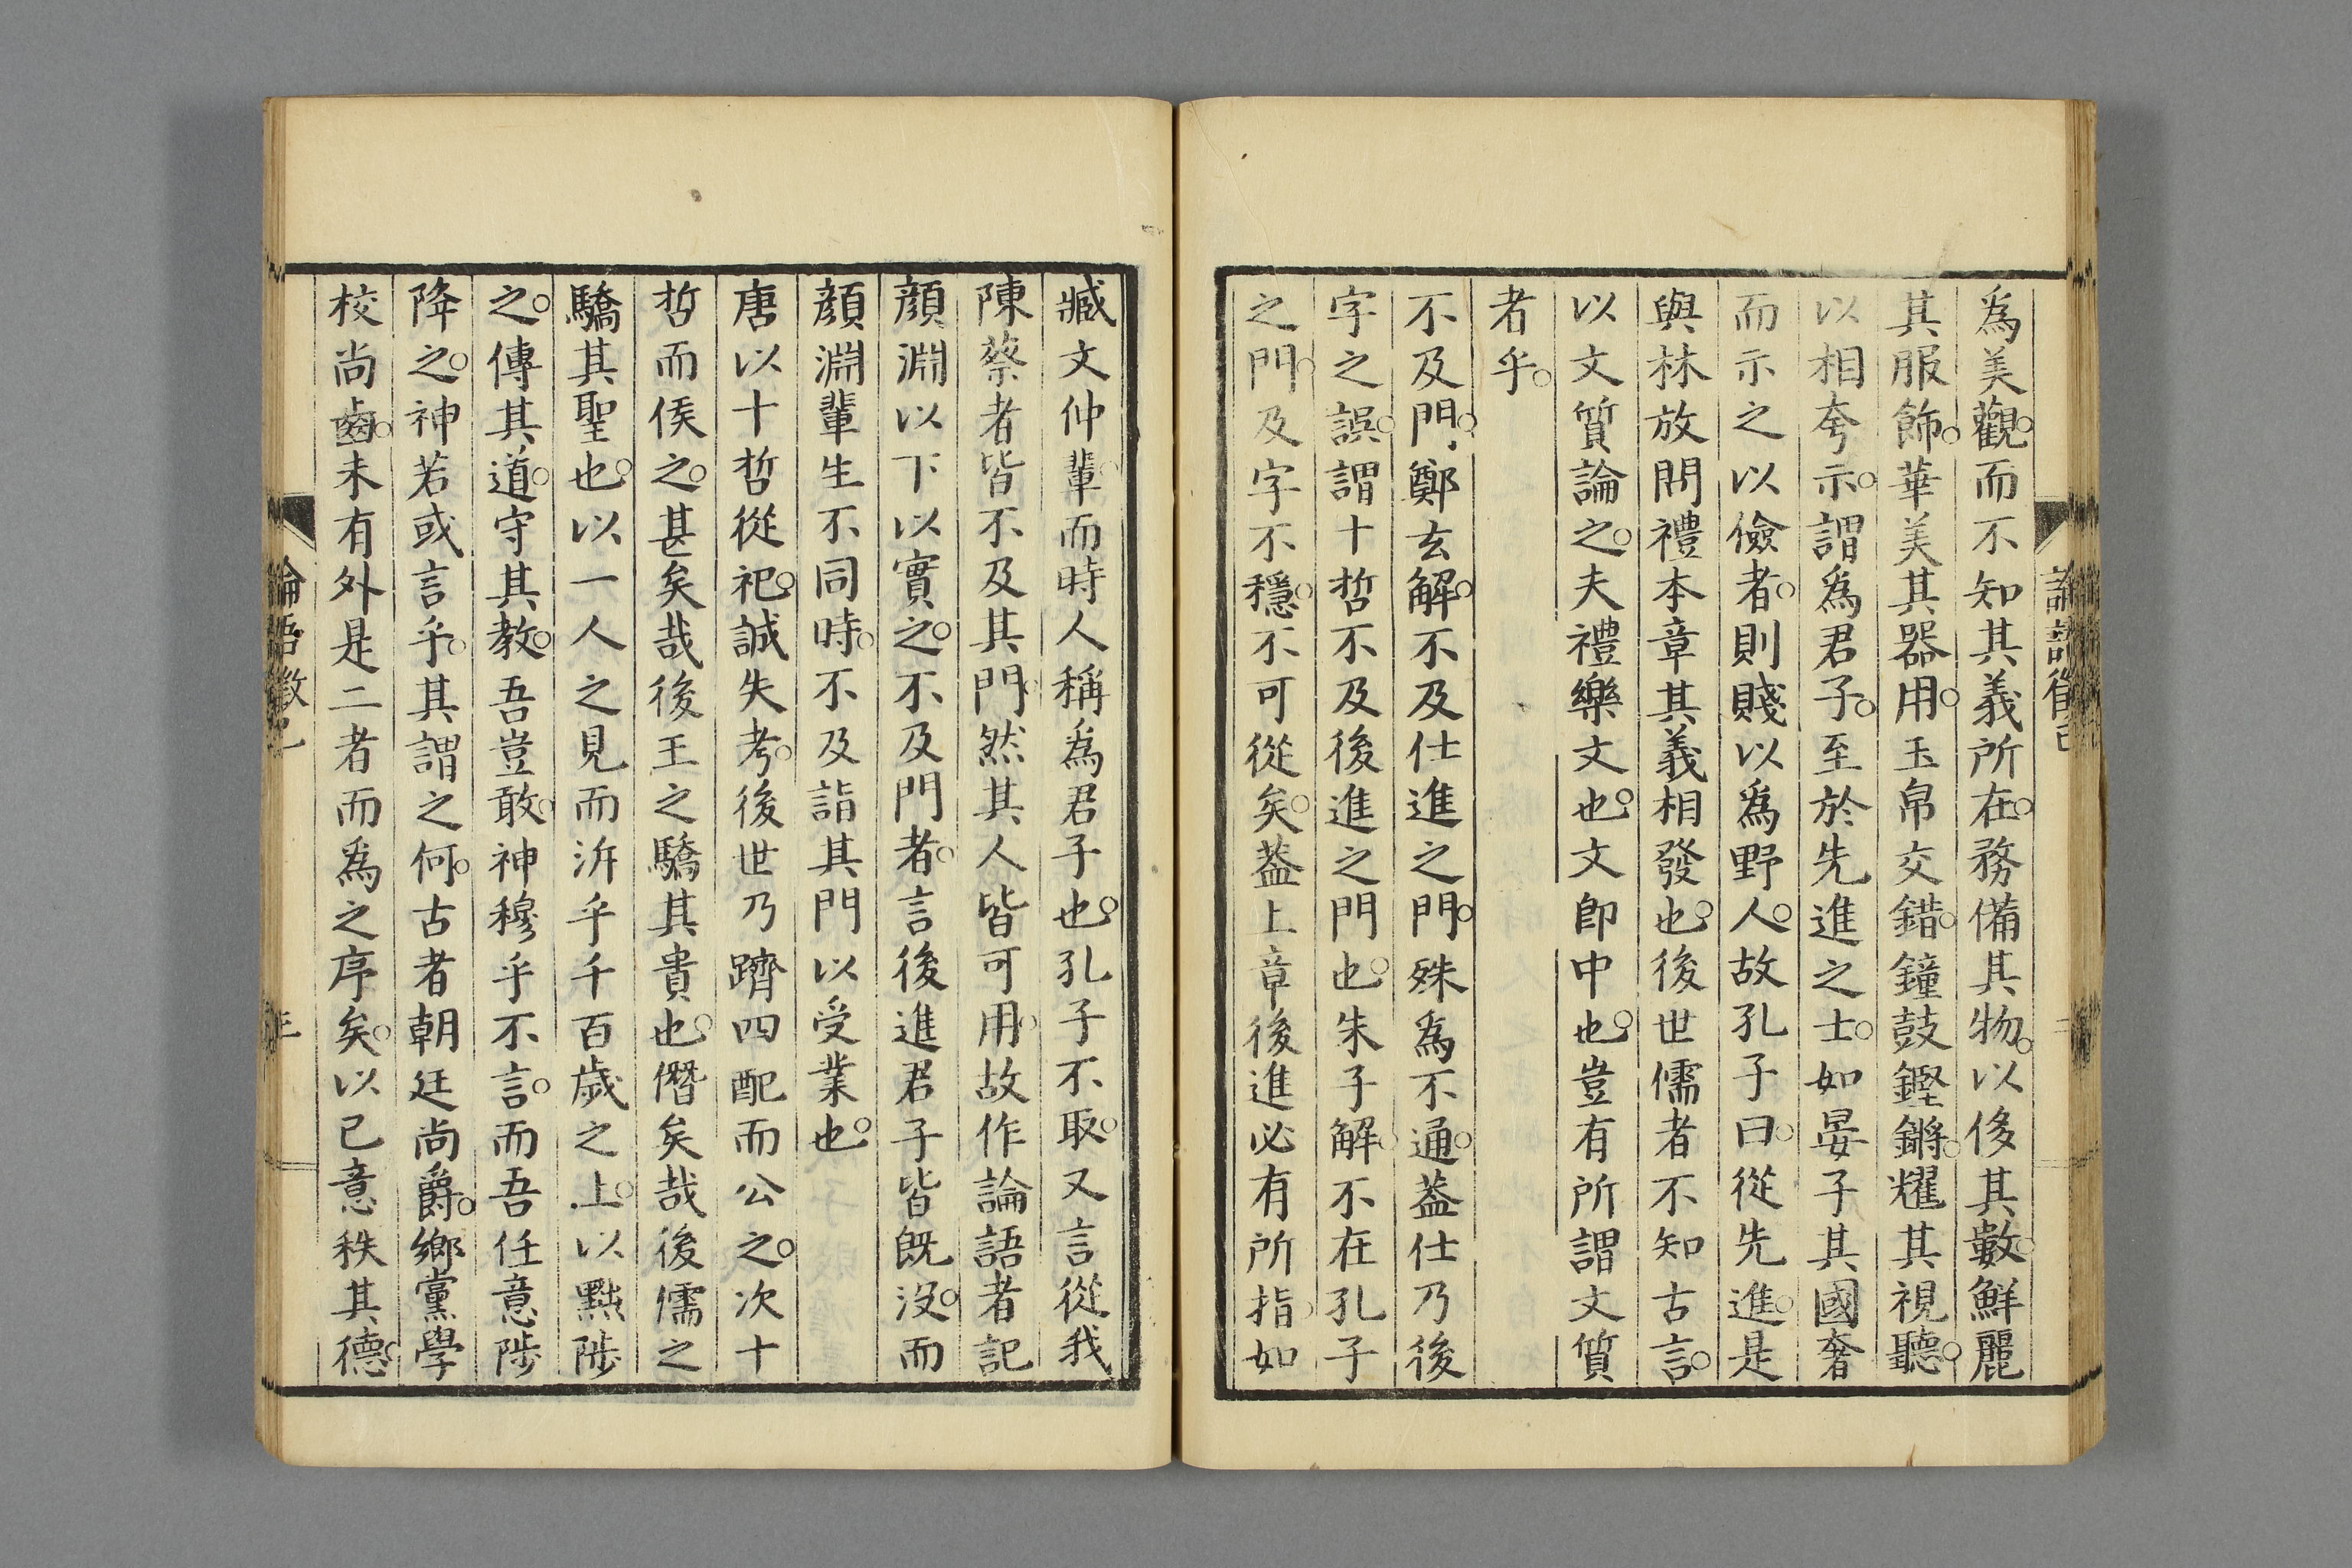 爲美觀。而不知其義所在。務備其物。以侈其數。鮮麗
其服飾。華美其器用。玉帛交錯。鐘鼓鏗鏘。耀其視聽。
以相夸示。謂爲君子。至於先進之士。如晏子其國奢
而示之以儉者。則賤以爲野人。故孔子曰。從先進。是
與林放問禮本章其義相發也。後世儒者不知古言。
以文質論之。夫禮樂文也。文卽中也。豈有所謂文質
者乎。
不及門。鄭玄解。不及仕進之門。殊爲不通。蓋仕乃後
字之誤。謂十哲不及後進之門也。朱子解。不在孔子
之門。及字不穩。不可從矣。蓋上章後進必有所指。如
臧文仲輩。而時人稱爲君子也。孔子不取。又言從我
陳蔡者皆不及其門。然其人皆可用。故作論語者記
顏淵以下以實之。不及門者。言後進君子皆既沒。而
顏淵輩生不同時。不及詣其門以受業也。
唐以十哲從祀。誠失考。後世乃躋四配而公之。次十
哲而侯之。甚矣哉後王之驕其貴也。僭矣哉後儒之
驕其聖也。以一人之見而泝乎千百歲之上。以黜陟
之。傳其道。守其教。吾豈敢。神穆乎不言。而吾任意陟
降之。神若或言乎。其謂之何。古者朝廷尚爵。鄉黨學
校尚齒。未有外是二者而爲之序矣。以己意秩其德。
論語徵己